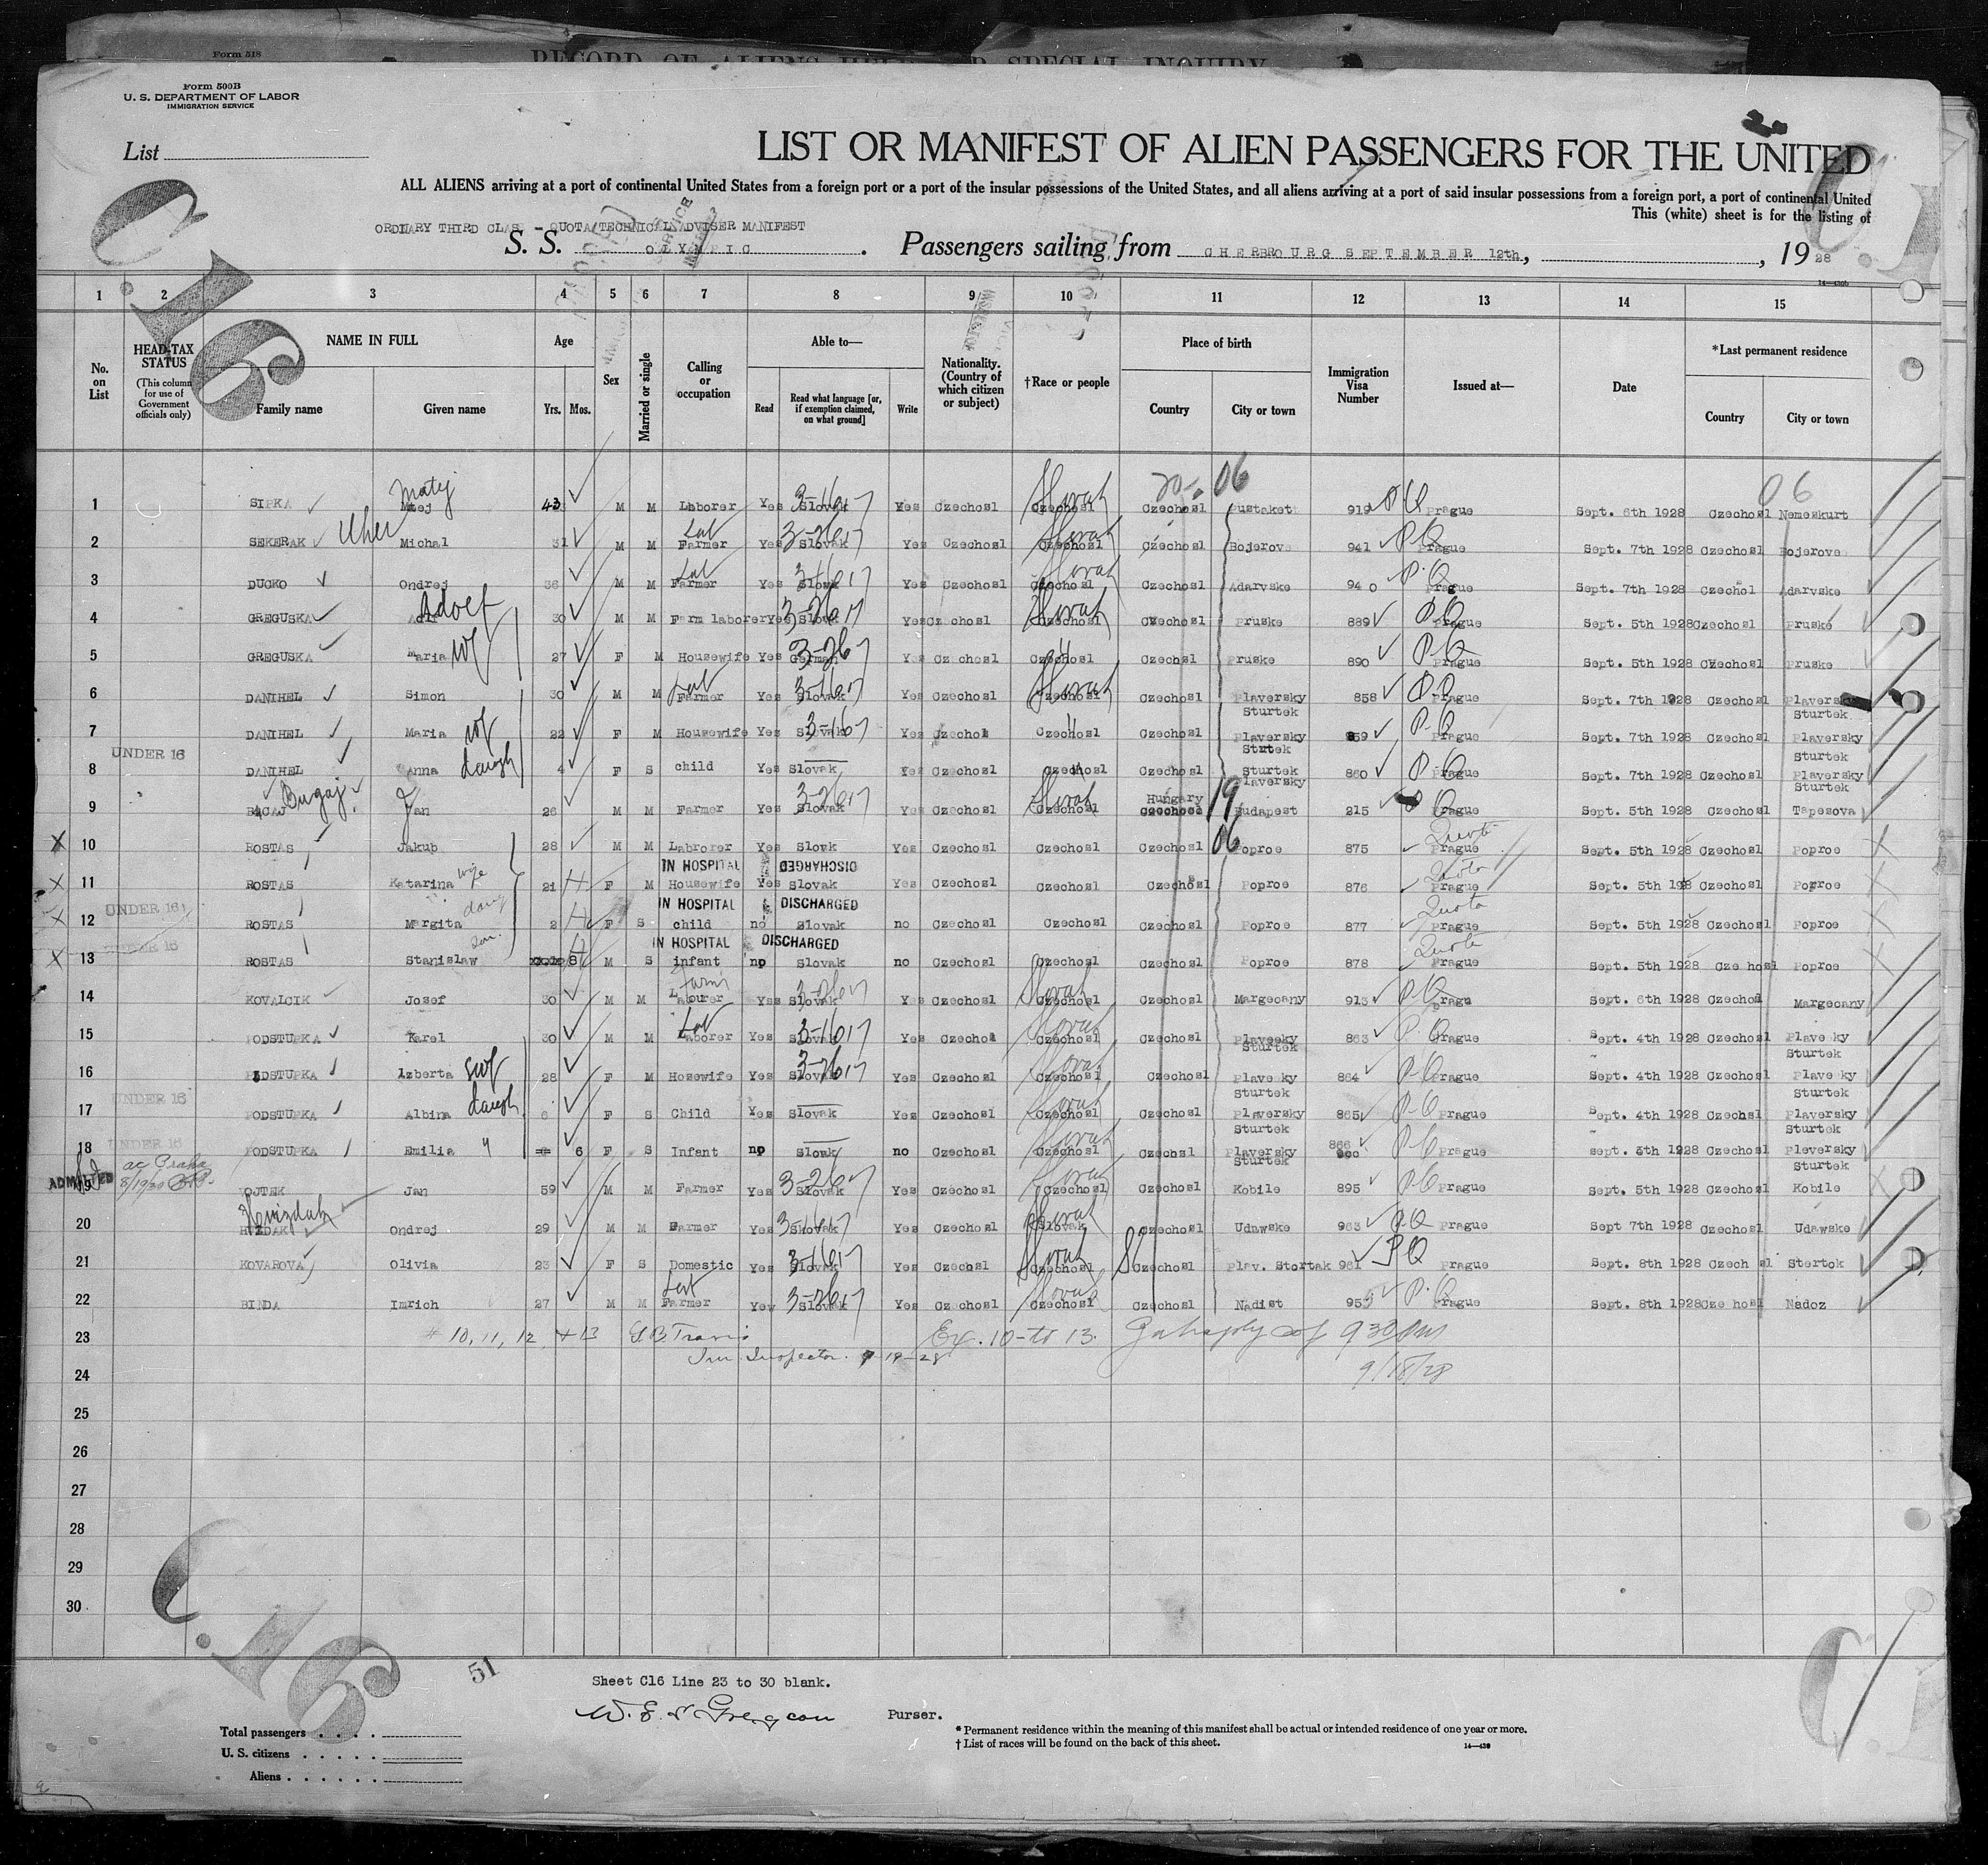 Form 518
RECORD OF ALIENS HELD FOR SPECIAL INQUIRY
Form 500B
U. S. DEPARTMENT OF LABOR
IMMIGRATION SERVICE
List
LIST OR MANIFEST OF ALIEN PASSENGERS FOR THE UNITED
ALL ALIENS arriving at a port of continental United States from a foreign port or a port of the insular possessions of the United States, and all aliens arriving at a port of said insular possessions from a foreign port, a port of continental United
This (white) sheet is for the listing of
ORDINARY THIRD CLASS - QUOTA/TECHNICAL ADVISER MANIFEST
S. S. OLYMPIC. Passengers sailing from CHERBOURG SEPTEMBER 12th, , 1928
C.16
1 2 3 4 5 6 7 8 9 10 11 12 13 14 15
No. on List
HEAD-TAX STATUS (This column for use of Government officials only)
NAME IN FULL Family name Given name
Age Yrs. Mos.
Sex
Married or single
Calling or occupation
Able to— Read Read what language [or, if exemption claimed, on what ground] Write
Nationality. (Country of which citizen or subject)
†Race or people
Place of birth Country City or town
Immigration Visa Number
Issued at—
Date
*Last permanent residence Country City or town
Matej 20- 06 06
1 SIPKA Matej 43 M M Laborer Yes Slovak Yes Czechosl Czechosl Slovak Czechosl Pustaket 919 PQ Prague Sept. 6th 1928 Czechosl Nemeskurt
2 SEKERAK Uher Michal 31 M M Farmer Yes Slovak Yes Czechosl Czechosl Slovak Czechosl Bojerove 941 PQ Prague Sept. 7th 1928 Czechosl Bojerove
3 DUCKO Ondrej 36 M M Farmer Yes Slovk Yes Czechosl Czechosl Slovak Czechosl Adarvske 940 P.Q Prague Sept. 7th 1928 Czechol Adarvske
4 GREGUSKA Adolf 30 M M Farm laborer Yes Slovk Yes Czchosl Czechosl Slovak Czechosl Pruske 889 PQ Prague Sept. 5th 1928 Czechosl Pruske
5 GREGUSKA Maria wf 27 F M Housewife Yes German Yes Czechosl Czechosl Czechsl Pruske 890 PQ Prague Sept. 5th 1928 Czechosl Pruske
6 DANIHEL Simon 30 M M Farmer Yes Slovak Yes Czechosl Czechosl Slovak Czechosl Plaversky Sturtek 858 PQ Prague Sept. 7th 1928 Czechosl Plaversky Sturtek
7 DANIHEL Maria wf 22 F M Housewife Yes Slovak Yes Czechol Czechosl Czechosl Plaversky Sturtek 859 P.Q Prague Sept. 7th 1928 Czechosl Plaversky Sturtek
UNDER 16
8 DANIHEL Anna daugh 4 F S child Yes Slovak Yes Czechosl Czechosl Czechosl Sturtek Plaversky 860 P.Q Prague Sept. 7th 1928 Czechosl Plaversky Sturtek
9 BUCAJ Bugaj Jan 26 M M Farmer Yes Slovak Yes Czechosl Czechosl Slovak Hungary Czechosl 19 Budapest 215 PQ Prague Sept. 5th 1928 Czechosl Tapesova
10 ROSTAS Jakub 28 M M Labrorer Yes Slovk Yes Czechosl Czechosl Czechosl 06 Poproe 875 Quota Prague Sept. 5th 1928 Czechosl Poproe
IN HOSPITAL DISCHARGED
11 ROSTAS Katarina wife 21 F M Housewife Yes Slovak Yes Czechosl Czechosl Czechosl Poproe 876 Quota Prague Sept. 5th 1928 Czechosl Poproe
UNDER 16 IN HOSPITAL & DISCHARGED
12 ROSTAS Margita daug 2 F S child no Slovak no Czechosl Czechosl Czechosl Poproe 877 Quota Prague Sept. 5th 1928 Czechosl Poproe
UNDER 16 IN HOSPITAL DISCHARGED
13 ROSTAS Stanislaw 8 M S infant no Slovak no Czechosl Czechosl Czechosl Poproe 878 Quota Prague Sept. 5th 1928 Czechosl Poproe
14 KOVALCIK Josef 30 M M Farm Labourer Yes Slovak Yes Czechosl Czechosl Slovak Czechosl Margecany 913 PQ Prague Sept. 6th 1928 Czechosl Margecany
15 PODSTUPKA Karel 30 M M Laborer Yes Slovak Yes Czechosl Czechosl Slovak Czechosl Plavesky Sturtek 863 P.Q Prague Sept. 4th 1928 Czechosl Plavesky Sturtek
16 PODSTUPKA Alzberta wf 28 F M Hosewife Yes Slovak Yes Czechosl Czechosl Slovak Czechosl Plavesky Sturtek 864 PQ Prague Sept. 4th 1928 Czechosl Plavesky Sturtek
UNDER 16
17 PODSTUPKA Albina daugh 6 F S Child Yes Slovak Yes Czechosl Czechosl Slovak Czechosl Plaversky Sturtek 865 P-Q Prague Sept. 4th 1928 Czechsl Plaversky Sturtek
UNDER 16
18 PODSTUPKA Emilia 6 F S Infant no Slovk no Czechosl Czechosl Slovak Czechsl Plaversky Sturtek 866 PQ Prague sept. 3th 1928 Czechosl Pleversky Sturtek
ADMITTED
19 VOJTEK Jan 59 M M Farmer Yes Slovak Yes Czechosl Czechosl Slovak Czechosl Kobile 895 PQ Prague Sept. 5th 1928 Czechosl Kobile
20 HVIZDAK Hvizdak Ondrej 29 M M Farmer Yes Slovak Yes Czechosl Slovak Czechosl Udawske 963 PQ Prague Sept 7th 1928 Czechosl Udawske
21 KOVAROVA Olivia 23 F S Domestic Yes Slovak Yes Czechsl Czechosl Slovak Czechosl Plav. Stortek 961 PQ Prague Sept. 8th 1928 Czechosl Stertok
22 BINDA Imrich 27 M M Farmer Yes Slovak Yes Czechosl Czechosl Slovak Czechosl Nadist 955 P.Q Prague Sept. 8th 1928 Czechosl Nadoz
23 # 10, 11, 12 + 13 G B Travis Ex. 10-to 13. 9 30 AM
Imm Inspector. 9-19-28
24 9/18/28
25
26
27
28
29
30
C.16
51
Sheet C16 Line 23 to 30 blank.
Purser.
Total passengers
U. S. citizens
Aliens
* Permanent residence within the meaning of this manifest shall be actual or intended residence of one year or more.
† List of races will be found on the back of this sheet.
14—439